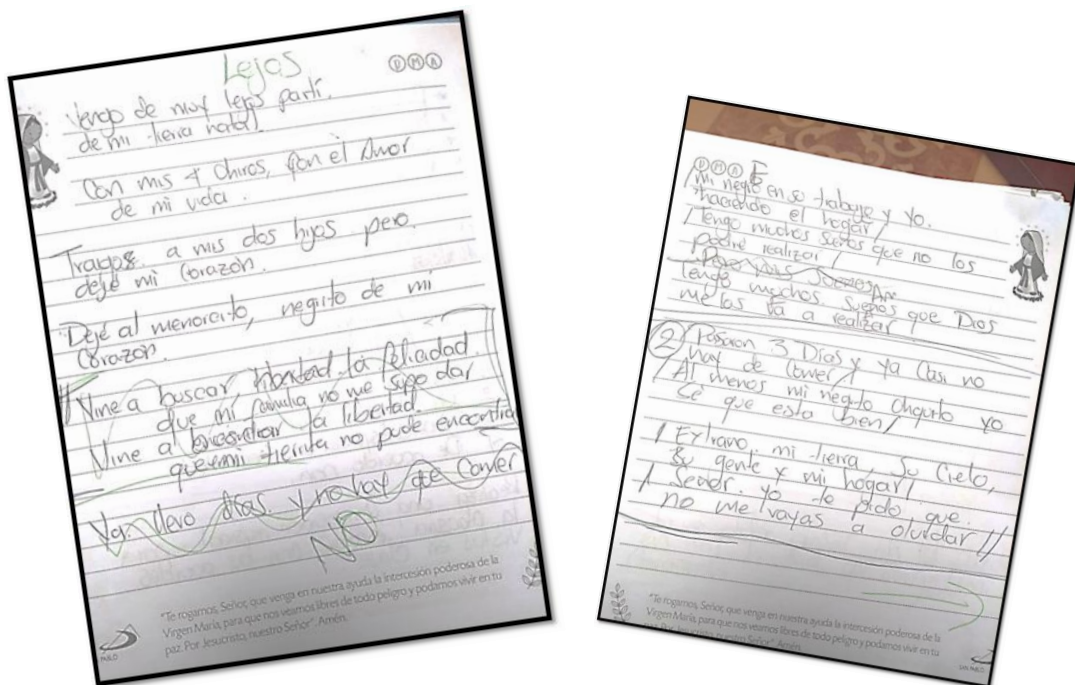 Lejos
D M A
Vengo de muy lejos partí.
de mi tierra natal.
Con mis 4 chiros, con el Amor
de mi vida.
Traigo a mis dos hijos pero.
dejé mi Corazón.
Dejé al menorcito, negrito de mi
Corazón.
Vine a buscar, libertad la felicidad.
que mi familia no me supo dar
Vine a encontrar la libertad.
que mi tierrita no pude encontrar
Ya llevo días. y no hay que Comer
NO
"Te rogamos, Señor, que venga en nuestra ayuda la intercesión poderosa de la
Virgen María, para que nos veamos libres de todo peligro y podamos vivir en tu
paz. Por Jesucristo, nuestro Señor". Amén.
PABLO
D M A
Mi negro en su trabajo y yo.
haciendo el hogar/
/Tengo muchos sueños que no los
podré realizar/
Tengo muchos sueños que Dios
me los va a realizar
2 Pasaron 3 Días y ya Casi no
hay de Comer/
/Al menos mi negrito Chiquito yo
Sé que esta bien/
/Extraño. mi tierra, su Cielo,
Su gente y mi hogar/
/Señor. yo te pido que.
no me vayas a olvidar//
"Te rogamos, Señor, que venga en nuestra ayuda la intercesión poderosa de la
Virgen María, para que nos veamos libres de todo peligro y podamos vivir en tu
paz. Por Jesucristo, nuestro Señor". Amén.
SAN PABLO